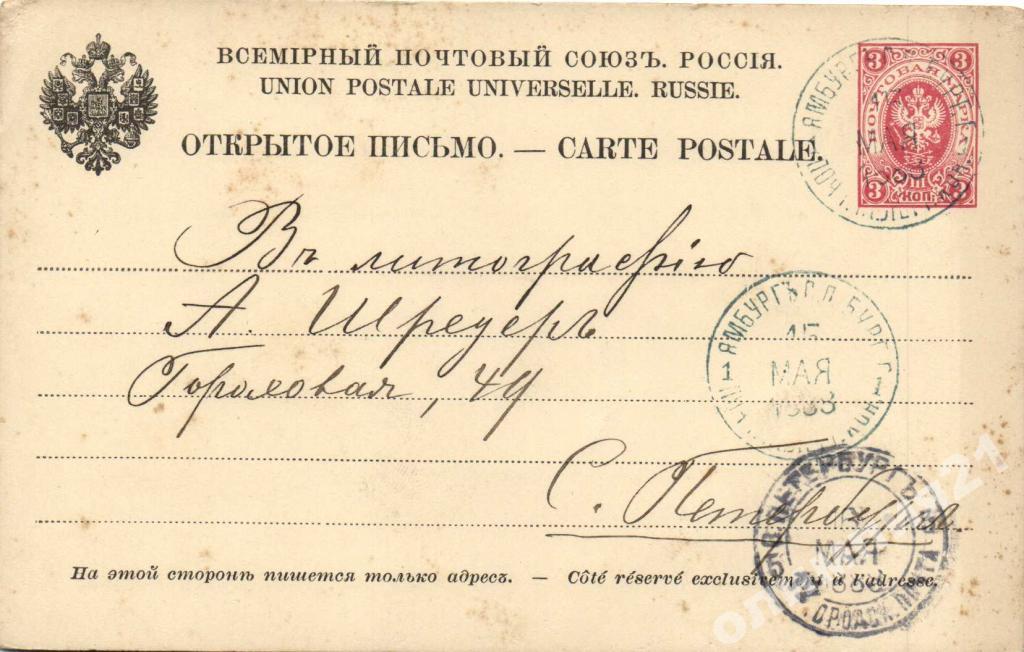 ВСЕМІРНЫЙ ПОЧТОВЫЙ СОЮЗЪ. РОССІЯ.
UNION POSTALE UNIVERSELLE. RUSSIE.
ОТКРЫТОЕ ПИСЬМО. — CARTE POSTALE.
3 3
ПОЧТОВАЯ МАРКА
3 КОП. 3
ЯМБУРГЪ
МАЯ
Въ литографію
А. Шредеръ
Гороховая, 49
С. Петербургъ.
ЯМБУРГЪ С.П.БУРГ. Г.
15
1 МАЯ 1
1888
С.ПЕТЕРБУРГЪ
МАЯ
ГОРОДСК. ПОЧТА
На этой сторонѣ пишется только адресъ. — Côté réservé exclusivement à l'adresse.